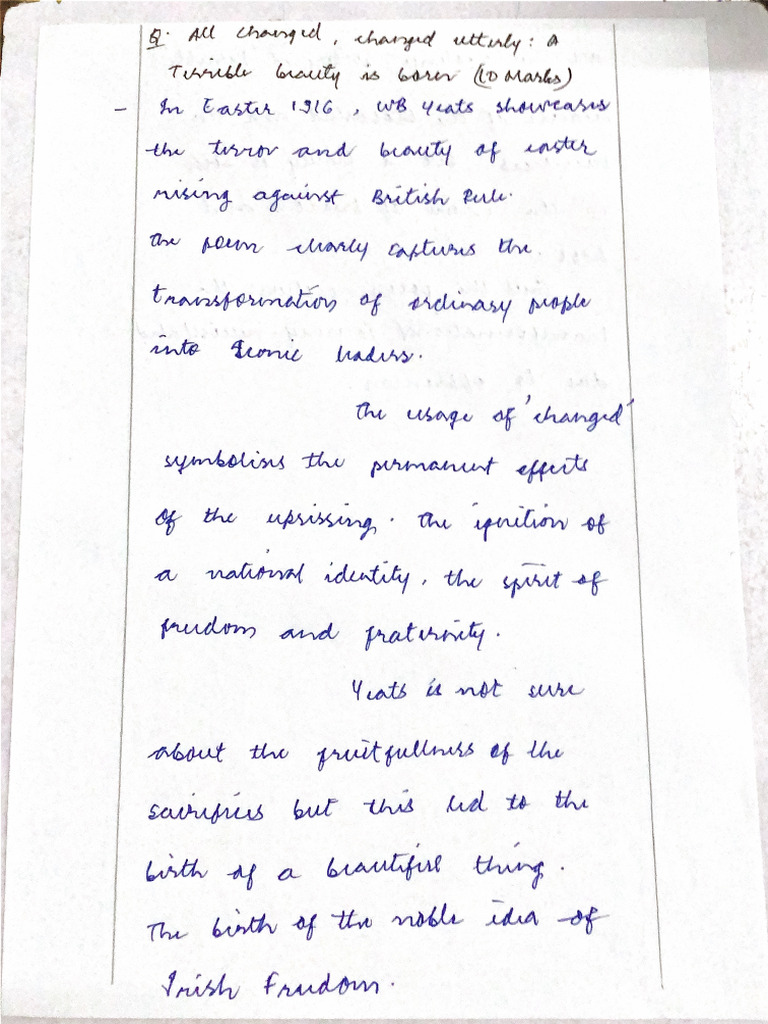 Q. All changed, changed utterly: A
Terrible beauty is born (10 Marks)
- In Easter 1916, WB Yeats showcases
the terror and beauty of easter
rising against British Rule.
The poem clearly captures the
transformation of ordinary people
into Iconic leaders.
The usage of 'changed'
symbolises the permanent effects
of the uprissing. The ignition of
a national identity, the spirit of
freedom and fraternity.
Yeats is not sure
about the fruitfullness of the
sacrifices but this led to the
birth of a beautiful thing.
The birth of the noble idea of
Irish Freedom.